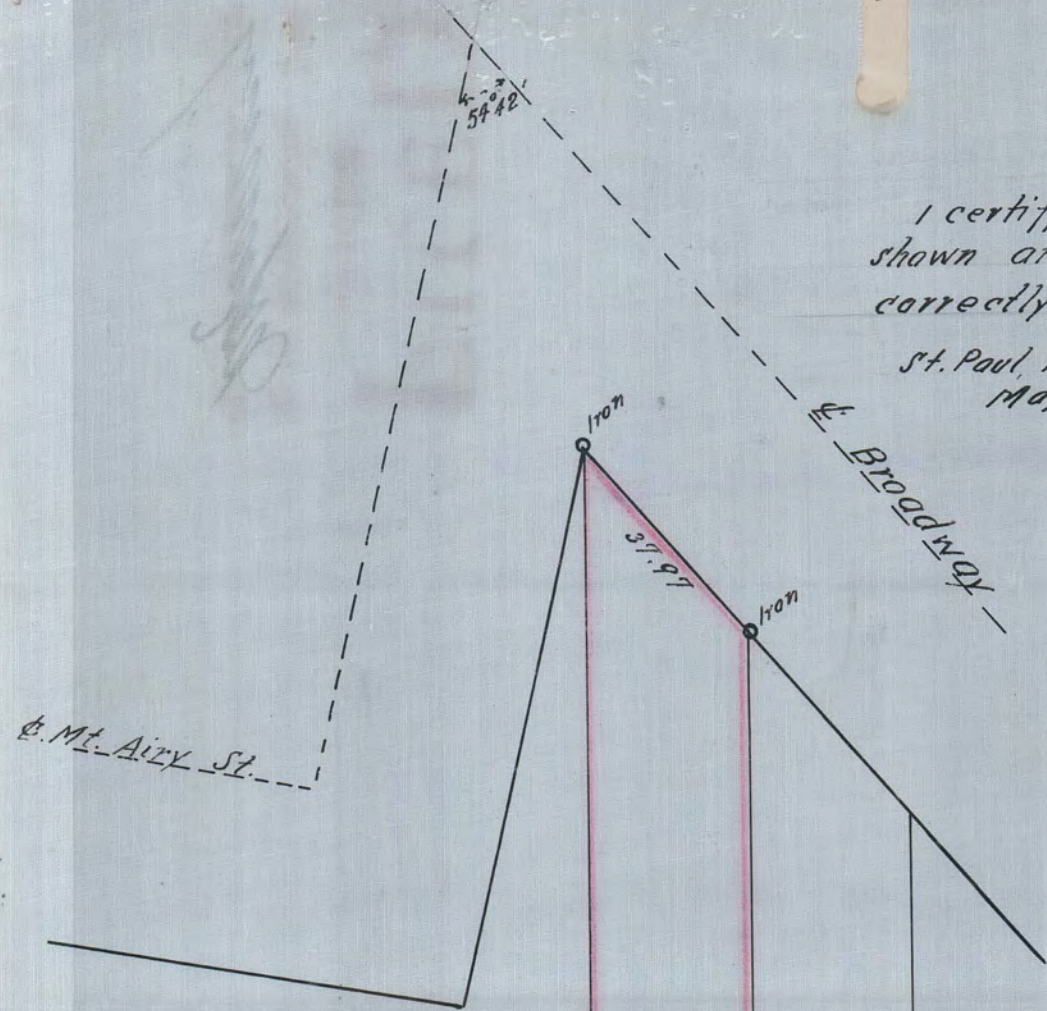 54°42'
I certif
shown a
correctly
St. Paul,
Ma
℄ Broadway
Iron
37.97
Iron
℄. Mt. Airy St.